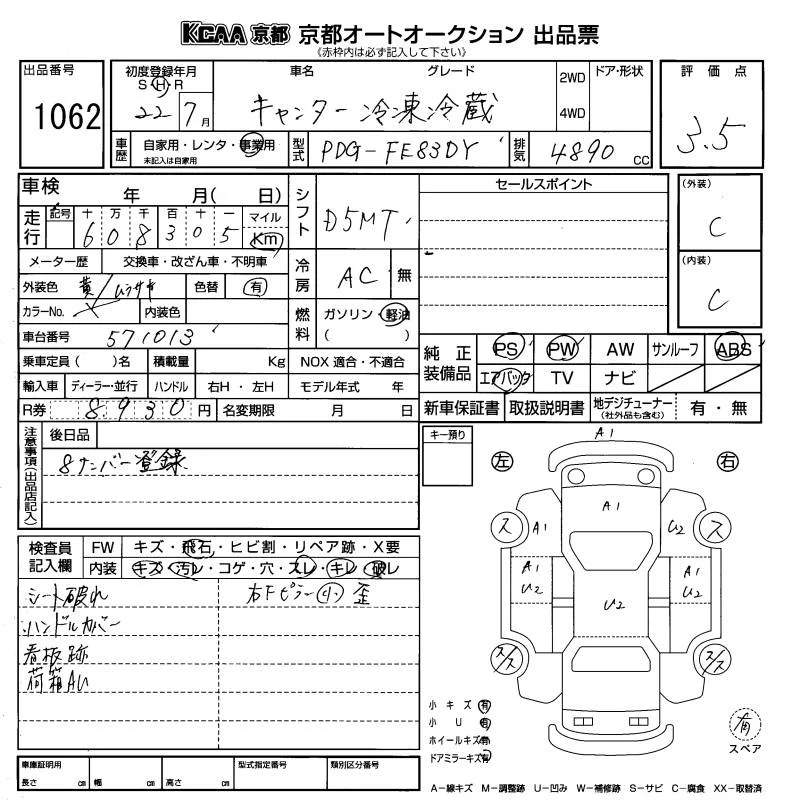 KCAA 京都 京都オートオークション 出品票
《赤枠内は必ず記入して下さい》
出品番号
1062
初度登録年月
S・H・R
22/7月
車名 グレード
キャンター 冷凍冷蔵
2WD
4WD
ドア・形状
評価点
3.5
車歴
自家用・レンタ・事業用
未記入は自家用
型式
PDG-FE83DY
排気
4890 CC
車検 年 月( 日)
シフト
D5MT
セールスポイント
(外装)
C
(内装)
C
走行
記号 十 万 千 百 十 一
608305
マイル
Km
メーター歴 交換車・改ざん車・不明車
冷房
AC 無
外装色 黄/ムラサキ 色替 有
カラーNo. 内装色
燃料
ガソリン・軽油
( )
車台番号 571013
乗車定員( )名 積載量 Kg NOX 適合・不適合
輸入車 ディーラー・並行 ハンドル 右H・左H モデル年式 年
R券 8930円 名変期限 月 日
純正装備品
PS PW AW サンルーフ ABS
エアバッグ TV ナビ
新車保証書 取扱説明書 地デジチューナー 有・無
(社外品も含む)
注意事項(出品店記入)
後日品
8ナンバー登録
キー預り
左
右
A1
A1
ス A1 U2 ス
A1 U2
U2
A1 U2
ス/ス ス/ス
検査員記入欄
FW キズ・飛石・ヒビ割・リペア跡・X要
内装 キズ・汚レ・コゲ・穴・スレ・キレ・破レ
シート破れ
ハンドルカバー
看板跡
荷箱AU
右Fピラー(小)歪
小キズ 有
小U 有
ホイールキズ 有
ドアミラーキズ 有
有
スペア
車庫証明用
長さ cm 幅 cm 高さ cm
型式指定番号
類別区分番号
A-線キズ M-調整跡 U-凹み W-補修跡 S-サビ C-腐食 XX-取替済